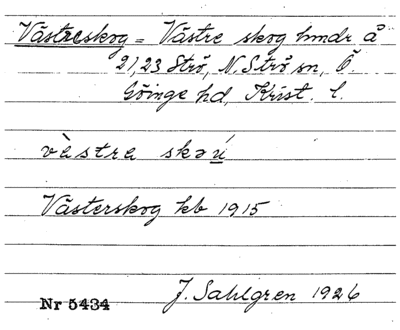 Västreskog = Västre skog hmdr å
21,23 Strö, N. Strö sn, Ö.
Göinge hd, Krist. l.
vèstra skoú
Västerskog kb 1915
Nr 5434 J. Sahlgren 1926